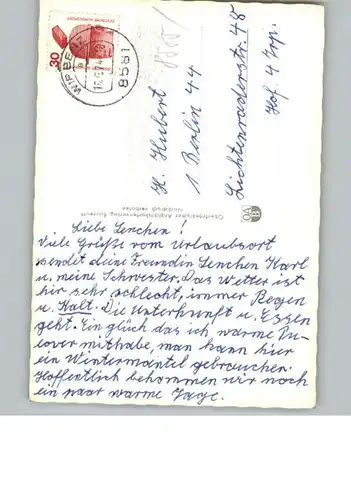 30
8581
H. Hubert
1 Berlin 44
Lichtenraderstr. 48
Hof 4 Trp.
Liebe Lenchen!
Viele Grüße vom Urlaubsort
sendet deine Freundin Lenchen Karl
u. meine Schwester. Das Wetter ist
hir sehr schlecht, immer Regen
u. Kalt. Die Unterkunft u. Essen
geht. Ein glück das ich warme Pu-
lover mithabe, man kann hier
ein Wintermantel gebrauchen.
Hoffentlich bekommen wir noch
ein paar warme Tage.